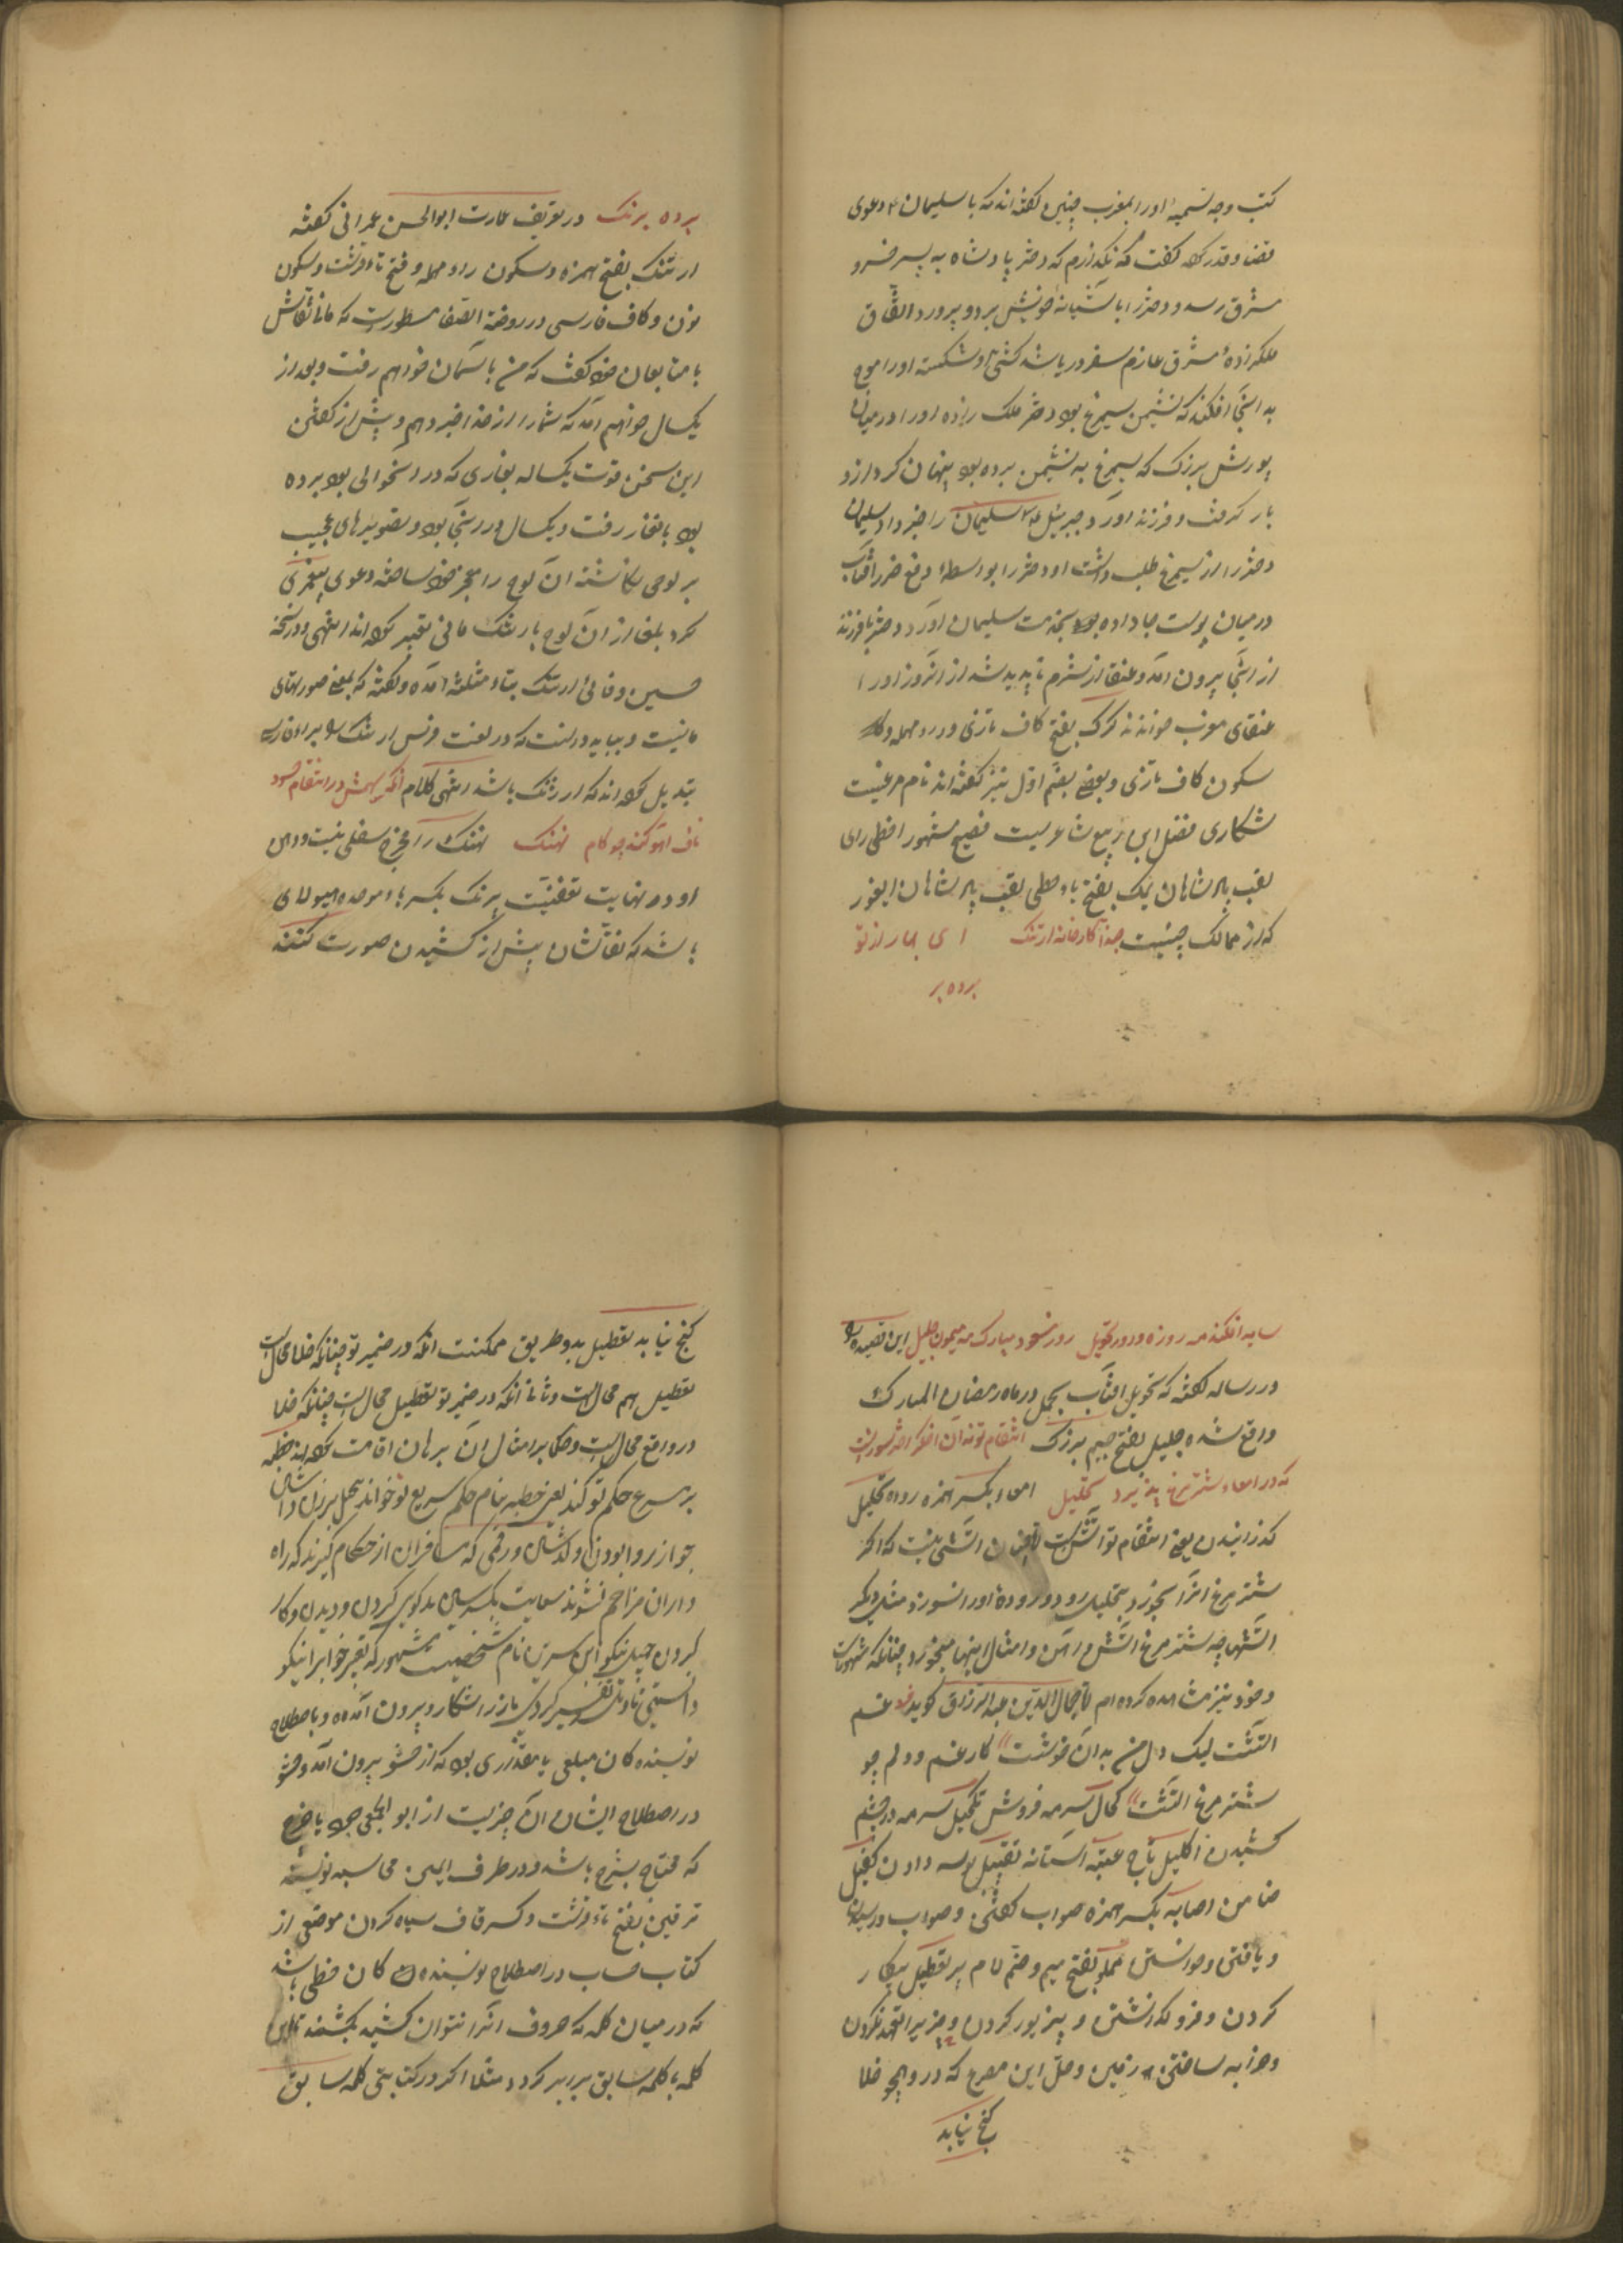 کتب وجه تسمیه او را بمغرب چنین گفته‌اند که با سلیمان ۴ دعوی
قضا و قدر کرد گفت که نگذارم که دختر پادشاه به پسر خسرو
مشرق رسد و دختر را با آشیانه خویش برد و پرورد اتفاق
ملکزادهٔ مشرق عازم سفر دریا شد کشتی او شکسته او را موج
به آنجا افکند که نشیمن سیمرغ بود دختر ملک زاده او را در میان
پورش بزرگ که سیمرغ به نشیمن برده بود پنهان کرد ازو
بار گرفت و فرزند آورد جبرئیل ع م سلیمان را خبر داد سلیمان
دختر را از سیمرغ طلب داشت او دختر را بواسطهٔ دفع ضرر آفتاب
در میان پوست جا داده بود بخدمت سلیمان آورد دختر با فرزند
از آنجا بیرون آمد و عنقا از شرم ناپدید شد از آن روز او را
عنقای مغرب خوانند کرک بفتح کاف تازی و راء مهمله و
سکون کاف تازی و بعضی بضم اول نیز گفته‌اند نام مرغیست
شکاری فضل ابن ربیع شاعریست فصیح مشهور افطی رای
لقب پادشاهان یمک بفتح یاء حطی لقب پادشاهان ایغور
که از ممالک چینست حبذا کارخانه ارتنک ای بهار از تو
برده بر
برده برنک در تعریف عمارت ابوالحسن عمرانی گفته
ارتنک بفتح همزه و سکون راء مهمله و فتح تاء قرشت و سکون
نون و کاف فارسی در روضة الصفا مسطورست که مانی نقاش
با متابعان خود گفت که من بآسمان خواهم رفت و بعد از
یکسال خواهم آمد که شما را از خدا خبر دهم و پیش از گفتن
این سخن قوت یکساله بغاری که در آن حوالی بود برده
بود بآن غار رفت و یکسال در آنجا بود و تصویرهای عجیب
بر لوحی نگاشته آن لوح را معجز خود ساخته دعوی پیغمبری
کرد بلغا از آن لوح بارتنک مانی تعبیر کرده‌اند انتهی و در نسخه
حسین وفائی ارثنک بثاء مثلثه آمده و گفته که بمعنی صورتهای
مانیست و بباید دانست که در لغت فرس ارثنک را بزاء فارسی
تبدیل کرده‌اند که ارژنک باشد انتهی کلام آنکه سهمش در انتقام حسود
ناف آهو کند چو کام نهنک نهنک را مخرج سفلی نیست و دهن
او در نهایت تعفنست برنک بکسر باء موحده هیولای
باشد که نقاشان پیش از کشیدن صورت کنند
سایه افکند مه روزه و روز تحویل روز مسعود مبارک مه میمون جلیل این قصیده را
در رساله گفته که تحویل آفتاب بحمل در ماه رمضان المبارک
واقع شده جلیل بفتح جیم بزرک انتقام تو نه آن اخگر اختر سوزست
که در امعاء شتر مرغ پذیرد تحلیل امعاء بکسر همزه روده تحلیل
گذرانیدن یعنی انتقام تو آتشیست نه چنان آتشی نیست که اگر
شتر مرغ آنرا بخورد بتحلیل رود و رودهٔ او را نسوزد مثل دیگر
آتشها چه شتر مرغ آتش و آهن و امثال اینها میخورد چنانکه مشهورست
و خود نیز مشاهده کرده‌ام جمال الدین عبدالرزاق گوید فرد غم
آتشت لیک دل من به آن خوشست کار غم و دلم چو
شتر مرغ آتشت کحال سرمه فروش تکحیل سرمه در چشم
کشیدن اکلیل تاج عتبه آستانه تقبیل بوسه دادن کفیل
ضامن اصابه بکسر همزه صواب گفتن و صواب و رسیدن
و یافتن و خواستن مملو بفتح میم و ضم لام پر تعطیل بیکار
کردن و فرو گذاشتن و بی زیور کردن و تعهد نکردن
و خرابه ساختن زمین و حل این مصرع که در و هیچ خلا
کنج نیابد
کنج نیابد تعطیل بدو طریق ممکنست آنکه در ضمیر تو چنانکه خلا محالست
تعطیل هم محالست و ثانیا آنکه در ضمیر تو تعطیل محالست چنانکه خلا
در واقع محالست و حکما بر امثال آن برهان اقامت کرده‌اند خطبه
بر سرع حکم تو کند یعنی خطبه بنام حکم سریع تو خواند سجل بزرک داشتن
جواز روا بودن و گذشتن و رقمی که مسافران از حکام گیرند که راه
داران مزاحم نشوند سعایت بکسر سین بدگویی کردن و دیدن و کار
کردن جمیل نیکو ابن سیرین نام شخصیست مشهور که تعبیر خواب را نیکو
دانستی تاویل تفسیر کردن بارز آشکار و بیرون آمده و باصطلاح
نویسنده‌کان مبلغی یا مقداری بود که از حشو بیرون آمد و حشو
در اصطلاح ایشان آن چیزیست از ابواب جمع یا خرج
که محتاج بشرح باشد و در طرف ایمن محاسبه نویسند
ترقین بفتح تاء قرشت و کسر قاف سیاه کردن موضعی از
کتاب حساب در اصطلاح نویسنده کان خطی باشد
که در میان کلمه که حروف آنرا نتوان کشید بکشند تا این
کلمه با کلمه سابق برابر گردد مثلا اگر در کتابتی کلمه سابق